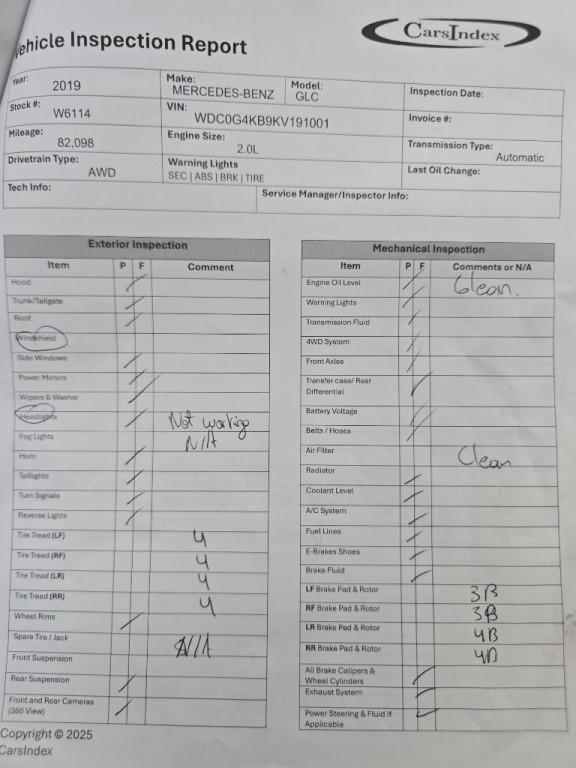 Vehicle Inspection Report
CarsIndex
Year: 2019 Make: MERCEDES-BENZ Model: GLC Inspection Date:
Stock #: W6114 VIN: WDC0G4KB9KV191001 Invoice #:
Mileage: 82,098 Engine Size: 2.0L Transmission Type: Automatic
Drivetrain Type: AWD Warning Lights SEC | ABS | BRK | TIRE Last Oil Change:
Tech Info: Service Manager/Inspector Info:
Exterior Inspection
Item P F Comment
Hood
Trunk/Tailgate
Roof
Windshield
Side Windows
Power Mirrors
Wipers & Washer
Headlights Not working
Fog Lights N/A
Horn
Taillights
Turn Signals
Reverse Lights
Tire Tread (LF) 4
Tire Tread (RF) 4
Tire Tread (LR) 4
Tire Tread (RR) 4
Wheel Rims
Spare Tire / Jack N/A
Front Suspension
Rear Suspension
Front and Rear Cameras
(360 View)
Mechanical Inspection
Item P F Comments or N/A
Engine Oil Level Clean.
Warning Lights
Transmission Fluid
4WD System
Front Axles
Transfer case/ Rear
Differential
Battery Voltage
Belts / Hoses
Air Filter Clean
Radiator
Coolant Level
A/C System
Fuel Lines
E-Brakes Shoes
Brake Fluid
LF Brake Pad & Rotor 3B
RF Brake Pad & Rotor 3B
LR Brake Pad & Rotor 4B
RR Brake Pad & Rotor 4B
All Brake Calipers &
Wheel Cylinders
Exhaust System
Power Steering & Fluid if
Applicable
Copyright © 2025
CarsIndex